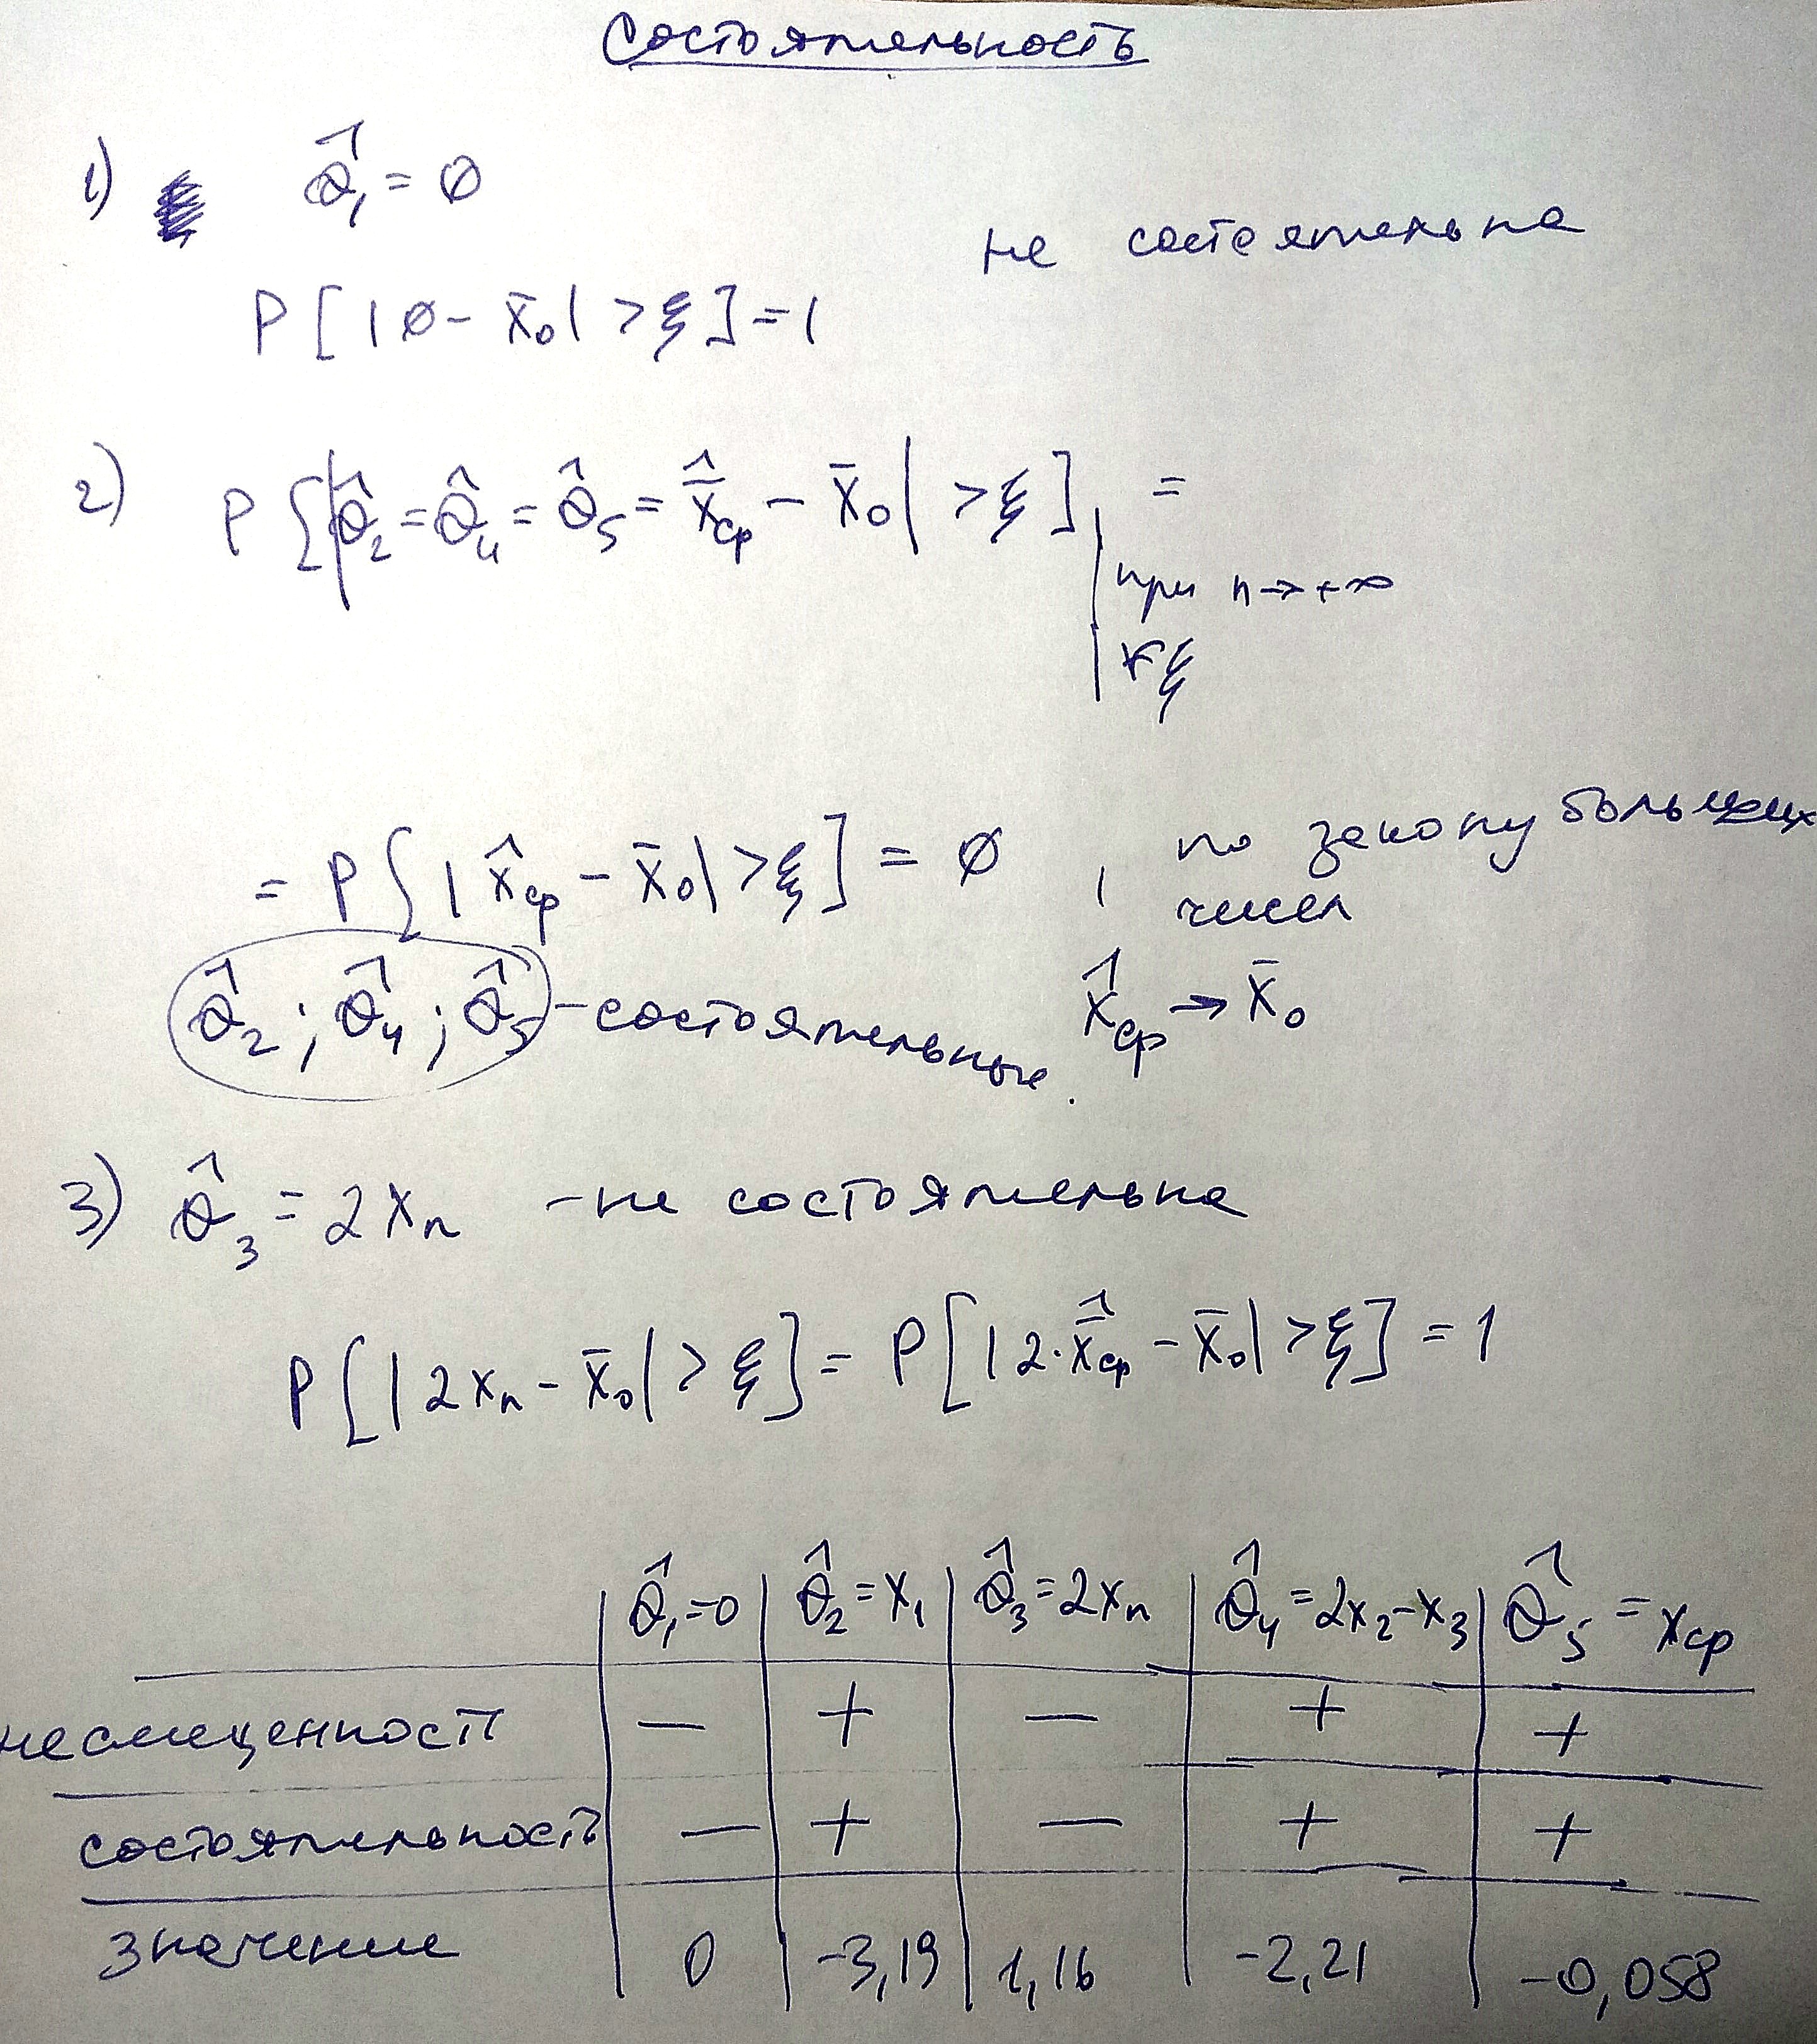 Состоятельность
1) θ̂₁ = 0
не состоятельна
P[|0 - x̄₀| > ξ] = 1
2) P{|θ̂₂ = θ̂₄ = θ̂₅ = x̄̂ср - x̄₀| > ξ] =
при n → +∞
∀ξ
= P{|x̂ср - x̄₀| > ξ] = 0 , по закону больших
чисел
θ̂₂ ; θ̂₄ ; θ̂₅ - состоятельные.
x̂ср → x̄₀
3) θ̂₃ = 2xₙ - не состоятельна
P[|2xₙ - x̄₀| > ξ] = P[|2·x̄̂ср - x̄₀| > ξ] = 1
θ̂₁=0 θ̂₂=x₁ θ̂₃=2xₙ θ̂₄=2x₂-x₃ θ̂₅=xср
несмещенность — + — + +
состоятельность — + — + +
значение 0 -3,19 1,16 -2,21 -0,058